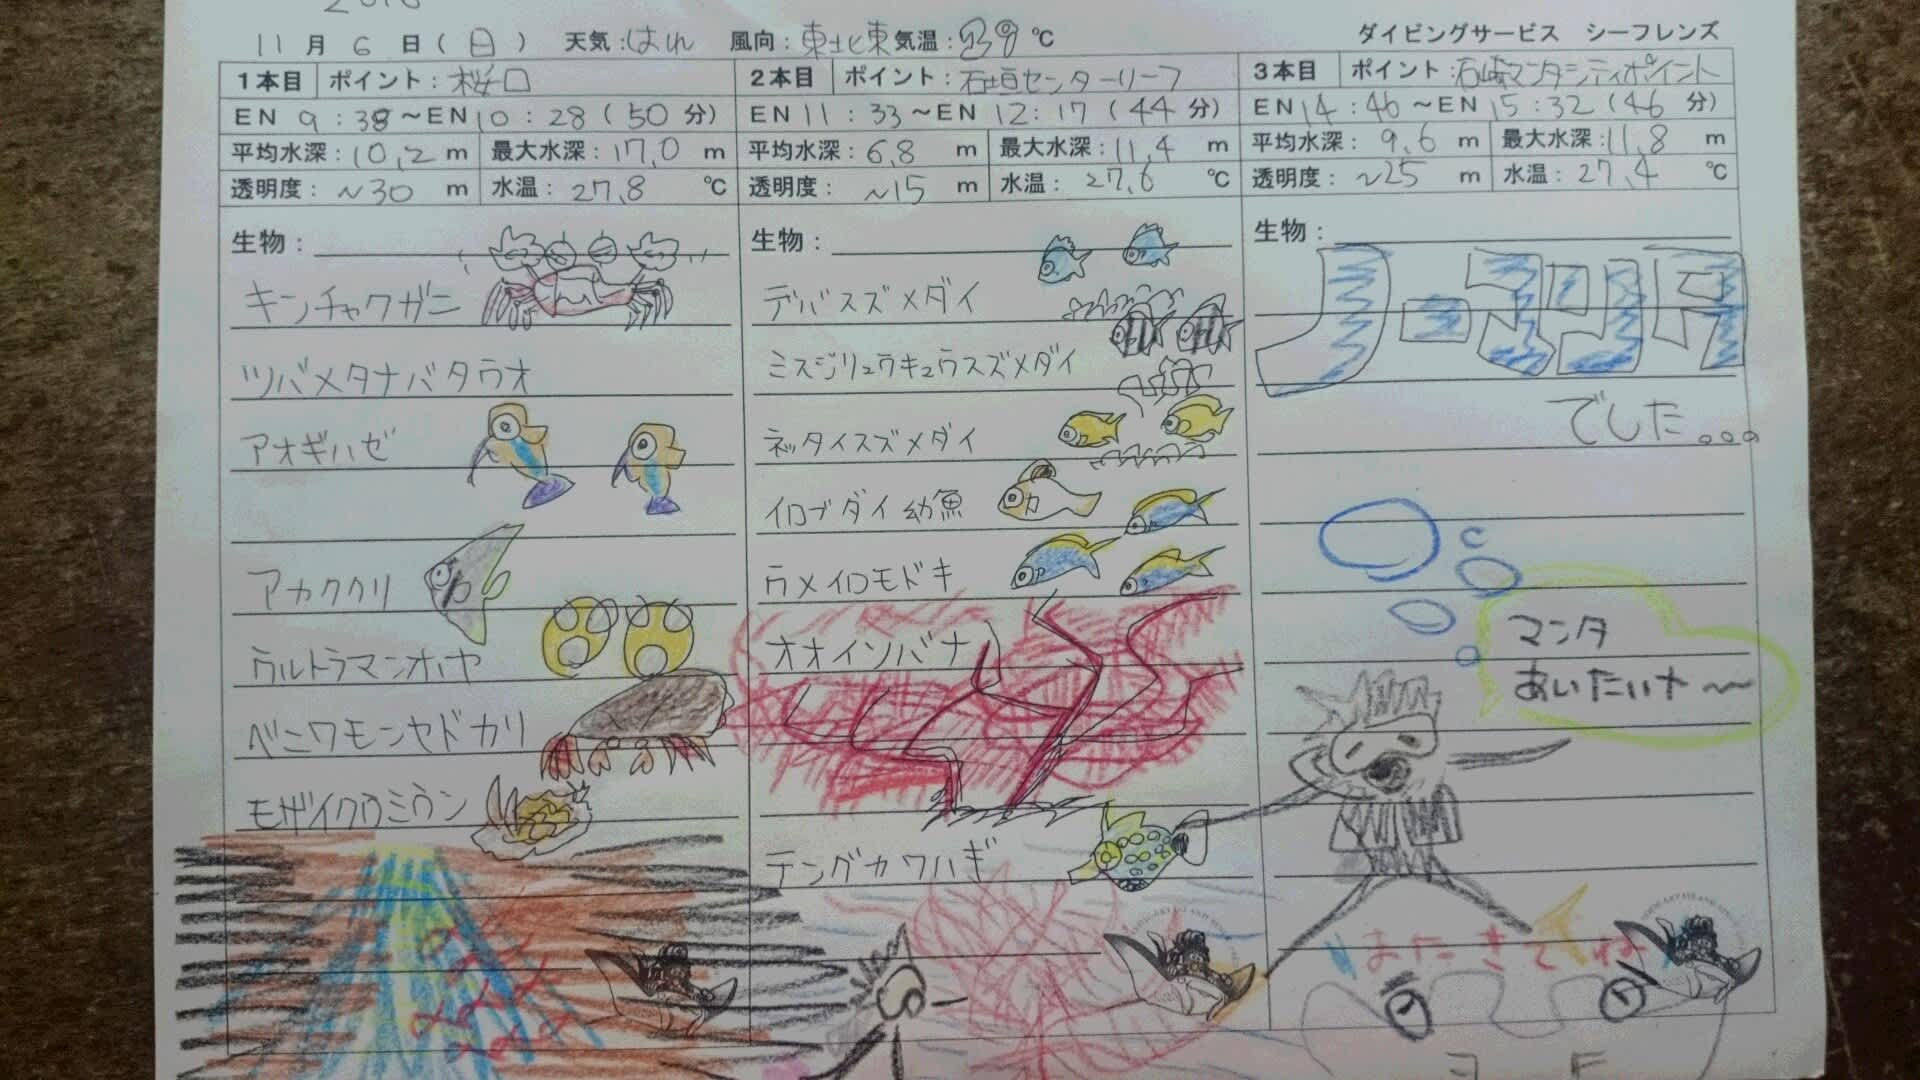 11月6日(日) 天気:はれ 風向:東北東 気温: ℃
ダイビングサービス シーフレンズ
1本目 ポイント:桜口
EN 9:38～EN 10:28(50分)
平均水深:10,2m 最大水深:17,0m
透明度:~30m 水温:27,8℃
生物:
キンチャクガニ
ツバメタナバタウオ
アオギハゼ
アカククリ
ウルトラマンホヤ
ベニワモンヤドカリ
モザイクウミウシ
2本目 ポイント:石垣センターリーフ
EN 11:33～EN 12:17(44分)
平均水深:6,8m 最大水深:11,4m
透明度:~15m 水温:27,6℃
生物:
デバスズメダイ
ミスジリュウキュウスズメダイ
ネッタイスズメダイ
イロブダイ 幼魚
ウメイロモドキ
オオイソバナ
テングカワハギ
3本目 ポイント:石崎マンタシティポイント
EN 14:46～EN 15:32(46分)
平均水深:9,6m 最大水深:11,8m
透明度:~25m 水温:27,4℃
生物:
ノーコメント
でした。。。
マンタ
あいたいナ～
またきてね